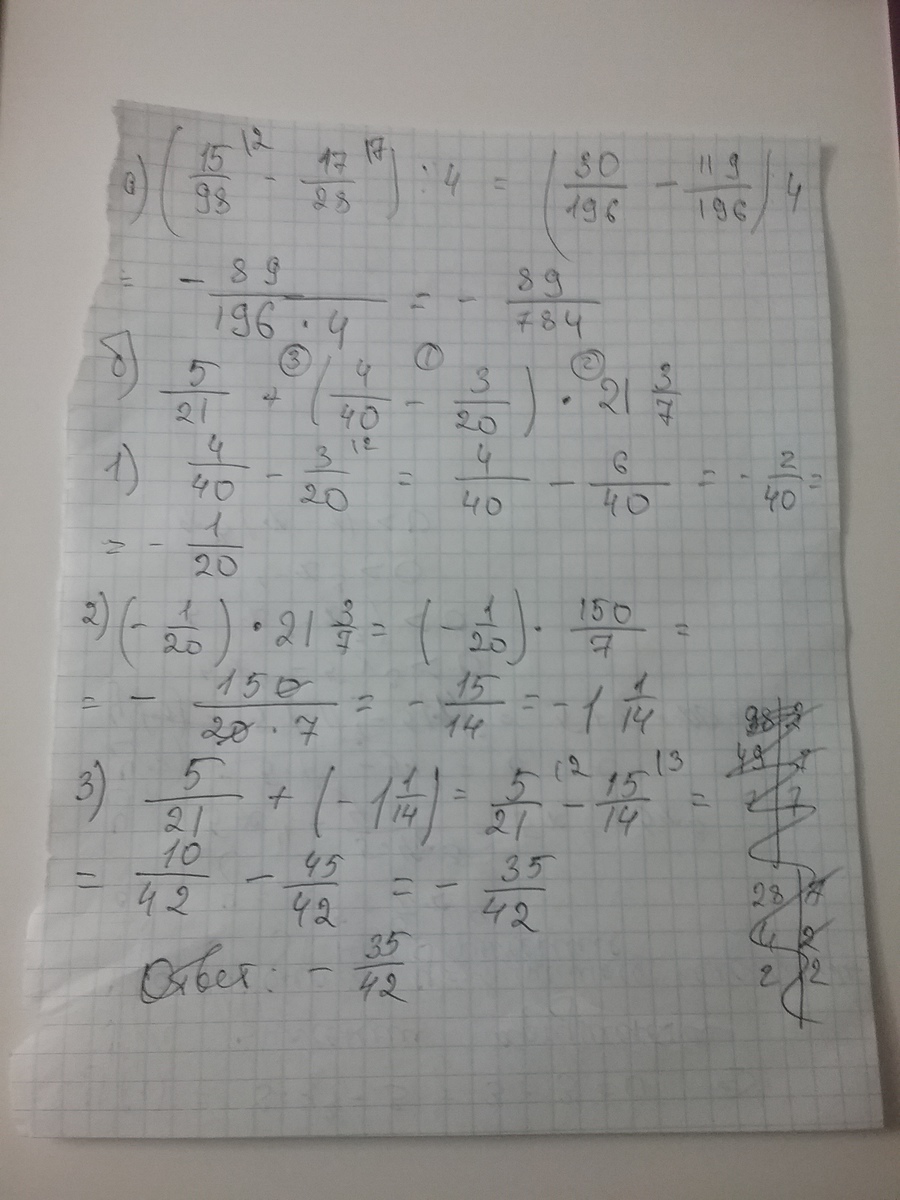 а) (15/98 \2 - 17/28 \7) : 4 = (30/196 - 119/196) 4
= - 89/(196 · 4) = - 89/784
б) 5/21 +③ (4/40 -① 3/20) ·② 21 3/7
1) 4/40 - 3/20 \2 = 4/40 - 6/40 = - 2/40 =
= - 1/20
2) (- 1/20) · 21 3/7 = (- 1/20) · 150/7 =
= - 150/(20 · 7) = - 15/14 = - 1 1/14
3) 5/21 + (- 1 1/14) = 5/21 \2 - 15/14 \3 =
= 10/42 - 45/42 = - 35/42
Ответ: - 35/42
98 2
49 7
7 7
28 7
4 2
2 2